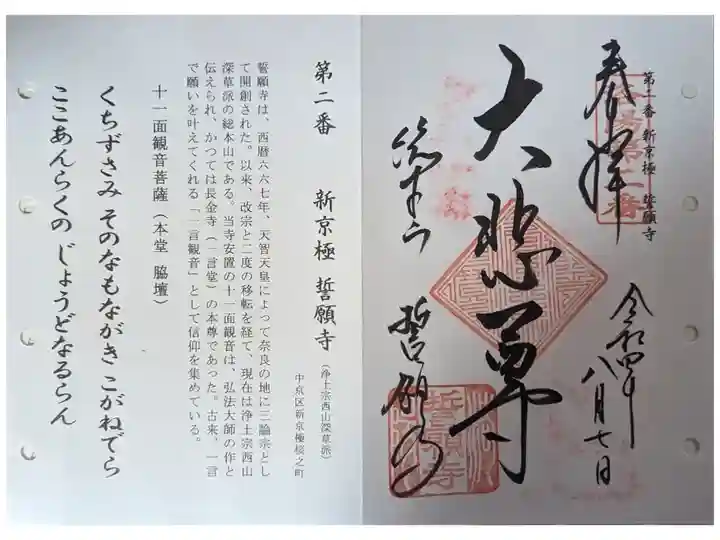 第二番 新京極 誓願寺
奉拝
令和四年八月七日
大悲尊
誓願寺
第二番 新京極 誓願寺(浄土宗西山深草派)
中京区新京極桜之町
誓願寺は、西暦六六七年、天智天皇によって奈良の地に三論宗とし
て開創された。以来、改宗と二度の移転を経て、現在は浄土宗西山
深草派の総本山である。当寺安置の十一面観音は、弘法大師の作と
伝えられ、かつては長金寺(一言堂)の本尊であった。古来、一言
で願いを叶えてくれる「一言観音」として信仰を集めている。
十一面観音菩薩(本堂 脇壇)
くちずさみ そのなもながき こがねでら
ここあんらくの じょうどなるらん